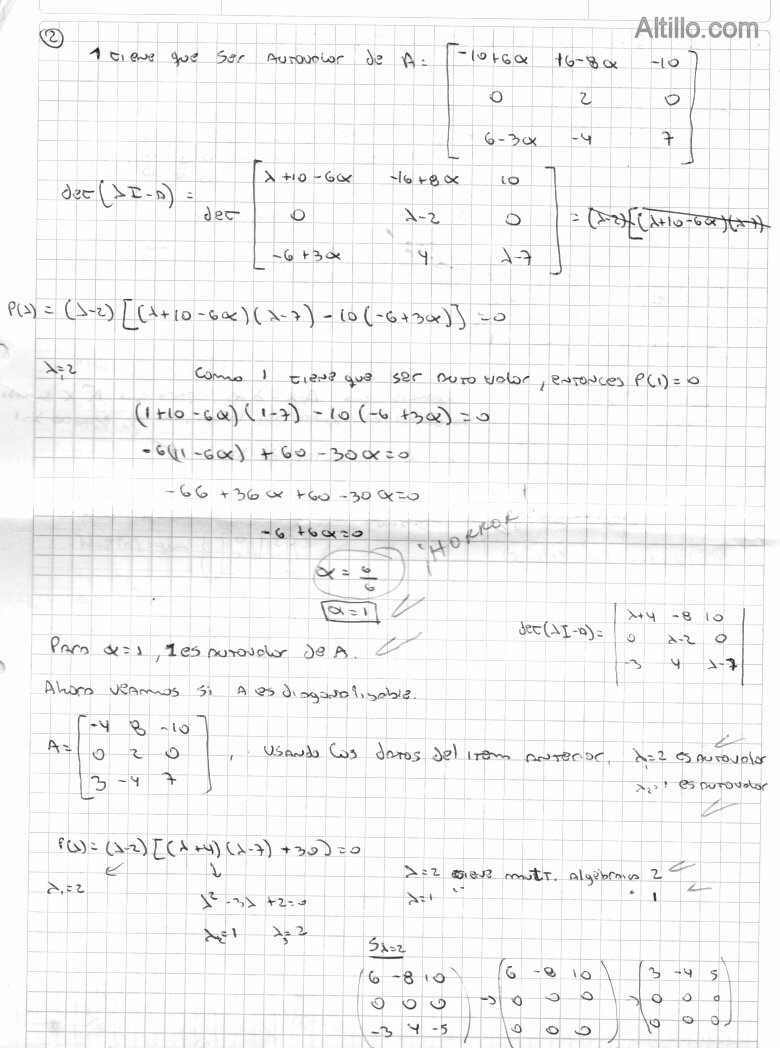 Altillo.com
②
1 tiene que ser autovalor de A = [ -10+6α 16-8α -10
0 2 0
6-3α -4 7 ]
det(λI-A) = det [ λ+10-6α -16+8α 10
0 λ-2 0
-6+3α 4 λ-7 ] = (λ-2)[(λ+10-6α)(λ-7)
P(λ) = (λ-2)[(λ+10-6α)(λ-7) - 10(-6+3α)] = 0
λ₁=2 Como 1 tiene que ser autovalor, entonces P(1)=0
(1+10-6α)(1-7) - 10(-6+3α) = 0
-6(11-6α) + 60 - 30α = 0
-66 + 36α + 60 - 30α = 0
-6 + 6α = 0
¡HORROR!
α = 6/6
α = 1
det(λI-A) = | λ+4 -8 10
0 λ-2 0
-3 4 λ-7 |
Para α=1, 1 es autovalor de A.
Ahora veamos si A es diagonalizable.
A = [ -4 8 -10
0 2 0
3 -4 7 ], usando los datos del item anterior, λ₁=2 es autovalor
λ₂=1 es autovalor
P(λ) = (λ-2)[(λ+4)(λ-7) + 30] = 0
λ₁=2 λ² - 3λ + 2 = 0
λ₂=1 λ₃=2
λ=2 tiene mult. algebraica 2
λ=1 " " 1
Sλ=2
( 6 -8 10
0 0 0
-3 4 -5 ) → ( 6 -8 10
0 0 0
0 0 0 ) → ( 3 -4 5
0 0 0
0 0 0 )